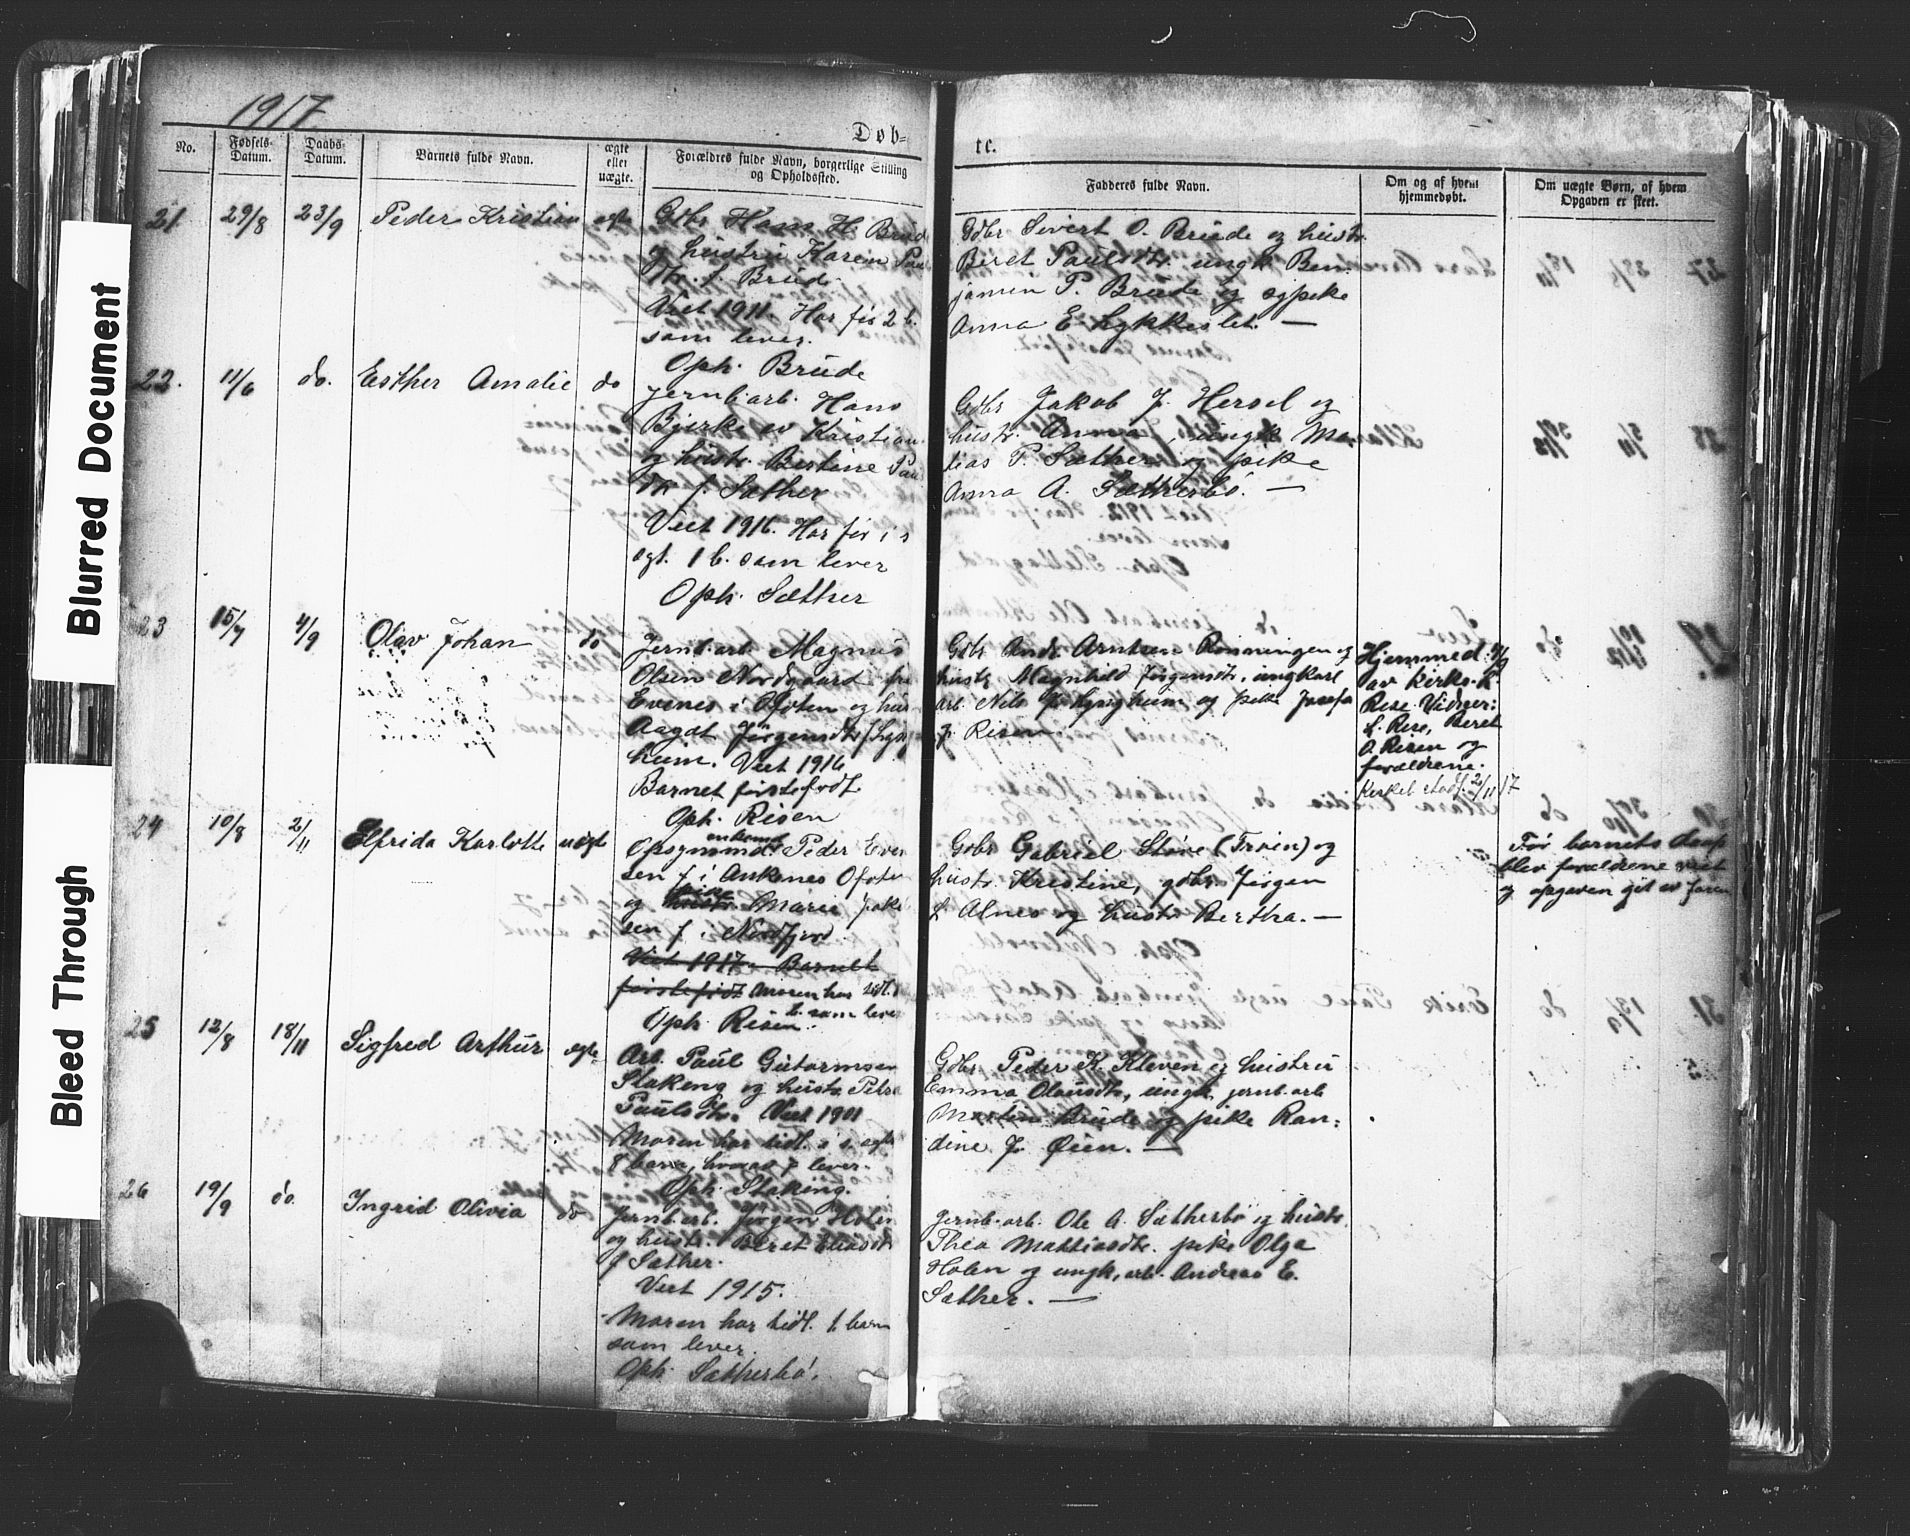 Blurred Document
Bleed Through
1917
Døb-
te.
No.
Fødsels-
Datum.
Daabs-
Datum.
Barnets fulde Navn.
ægte
eller
uægte.
Forældres fulde Navn, borgerlige Stilling
og Opholdssted.
Fadderes fulde Navn.
Om og af hvem
hjemmedøbt.
Om uægte Børn, af hvem
Opgaven er skeet.
21
29/8
23/9
Peder Kristian
egte
Gdbr Hans H. Brude
og hustru Karen
f. Brude
Viet 1911. Har før 2 b.
som lever.
Oph. Brude
Gdbr Sivert O. Brude og hustr.
Beret Paulsdtr. ungk Ben-
jamin P. Brude og pike
Anna E. Lykkeslet. —
22.
11/6
do.
Esther Amalie
do
Jernb.arb. Hans
Bjerke av Kristian
og hustr. Bertine Pau
dtr f. Sæther
Viet 1916. Har før i s
egt. 1 b. som lever
Oph. Sæther
Gdbr Jakob J. Hersel og
hustr. Anna, ungk Ma-
tias P. Sæther og pike
Anna A. Sætherbö. —
23
15/7
4/9
Olav Johan
do
Jernb.arb. Magnus
Olsen Nordgaard fra
Evenes i Ofoten og hus
Aagot Jörgensdtr f. Lyng
heim. Viet 1916
Barnet förstefödt.
Oph. Risen
Gdbr Andr. Arntsen Rönningen og
hustr. Magnhild Jörgensdtr, ungkarl
arb. Nils J. Lyngheim og pike Josefa
J. Risen
Hjemmed. 4/9
av kirkes. K.
Rise. Vidner:
L. Rise, Beret
O. Risen og
forældrene.
Kirkel. stadf. 2/11 17
24
10/8
2/11
Elfrida Karlotte
uegt
Opsynsmd. Peder Ever
sen f. i Ankenes Ofoten
og pike Marie Jako
sen f. i Nordfjord.
Viet 1917. Barnet
förstefödt Moren har tidl. 1
b. som lever
Oph. Risen.
Gdbr Gabriel Störe (Tröen) og
hustr. Kristine, gdbr Jörgen
L. Alnes og hustr. Bertha. —
Før barnets daap
blev forældrene viet
og opgaven git av faren
25
12/8
18/11
Sigfred Arthur
egte
Arb. Paul Gutormsen
Stokeng og hustr. Petra
Paulsdtr. Viet 1901
Moren har tidl. i s. egte
8 barn, hvorav 7 lever.
Oph. Stokeng.
Gdbr Peder K. Kleven og hustru
Emma Olausdtr, ungk. jernb.arb
Martin Brude og pike Ran-
dine J. Öien. —
26
19/9
do.
Ingrid Olivia
do
Jernb.arb. Jörgen Holen
og hustr. Beret Eliasdtr
f Sæther.
Viet 1915.
Moren har tidl. 1 barn
som lever.
Oph. Sætherbö.
Jernb.arb. Ole A. Sætherbö og hustr.
Thea Mattiasdtr. pike Olga
Holen og ungk. arb. Andreas E.
Sæther. —